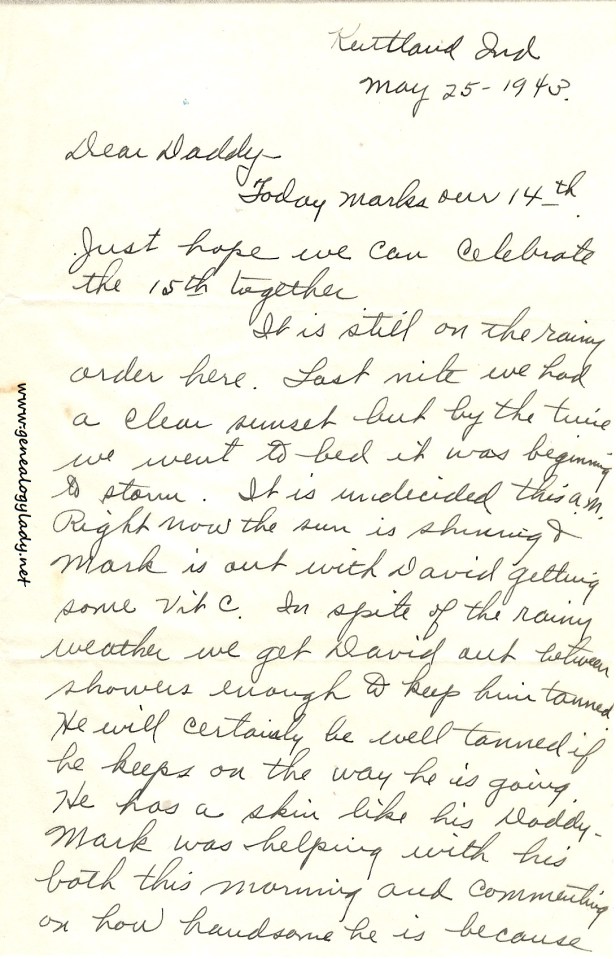 Kentland Ind
May 25-1943.
Dear Daddy-
Today marks our 14th.
Just hope we can celebrate
the 15th together
It is still on the rainy
order here. Last nite we had
a clear sunset but by the time
we went to bed it was beginning
to storm. It is undecided this a.m.
Right now the sun is shining &
Mark is out with David getting
some Vit C. In spite of the rainy
weather we get David out between
showers enough to keep him tanned.
He will certainly be well tanned if
he keeps on the way he is going.
He has a skin like his Daddy-
Mark was helping with his
bath this morning and commenting
on how handsome he is because
www.genealogylady.net